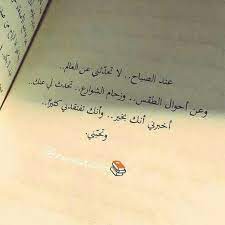 عند الصباح.. لا تحدثني عن العالم..
وعن أحوال الطقس.. وزحام الشوارع.. تحدث لي عنك..
أخبرني أنك بخير.. وأنك تفتقدني كثيرًا..
وتحبّني.